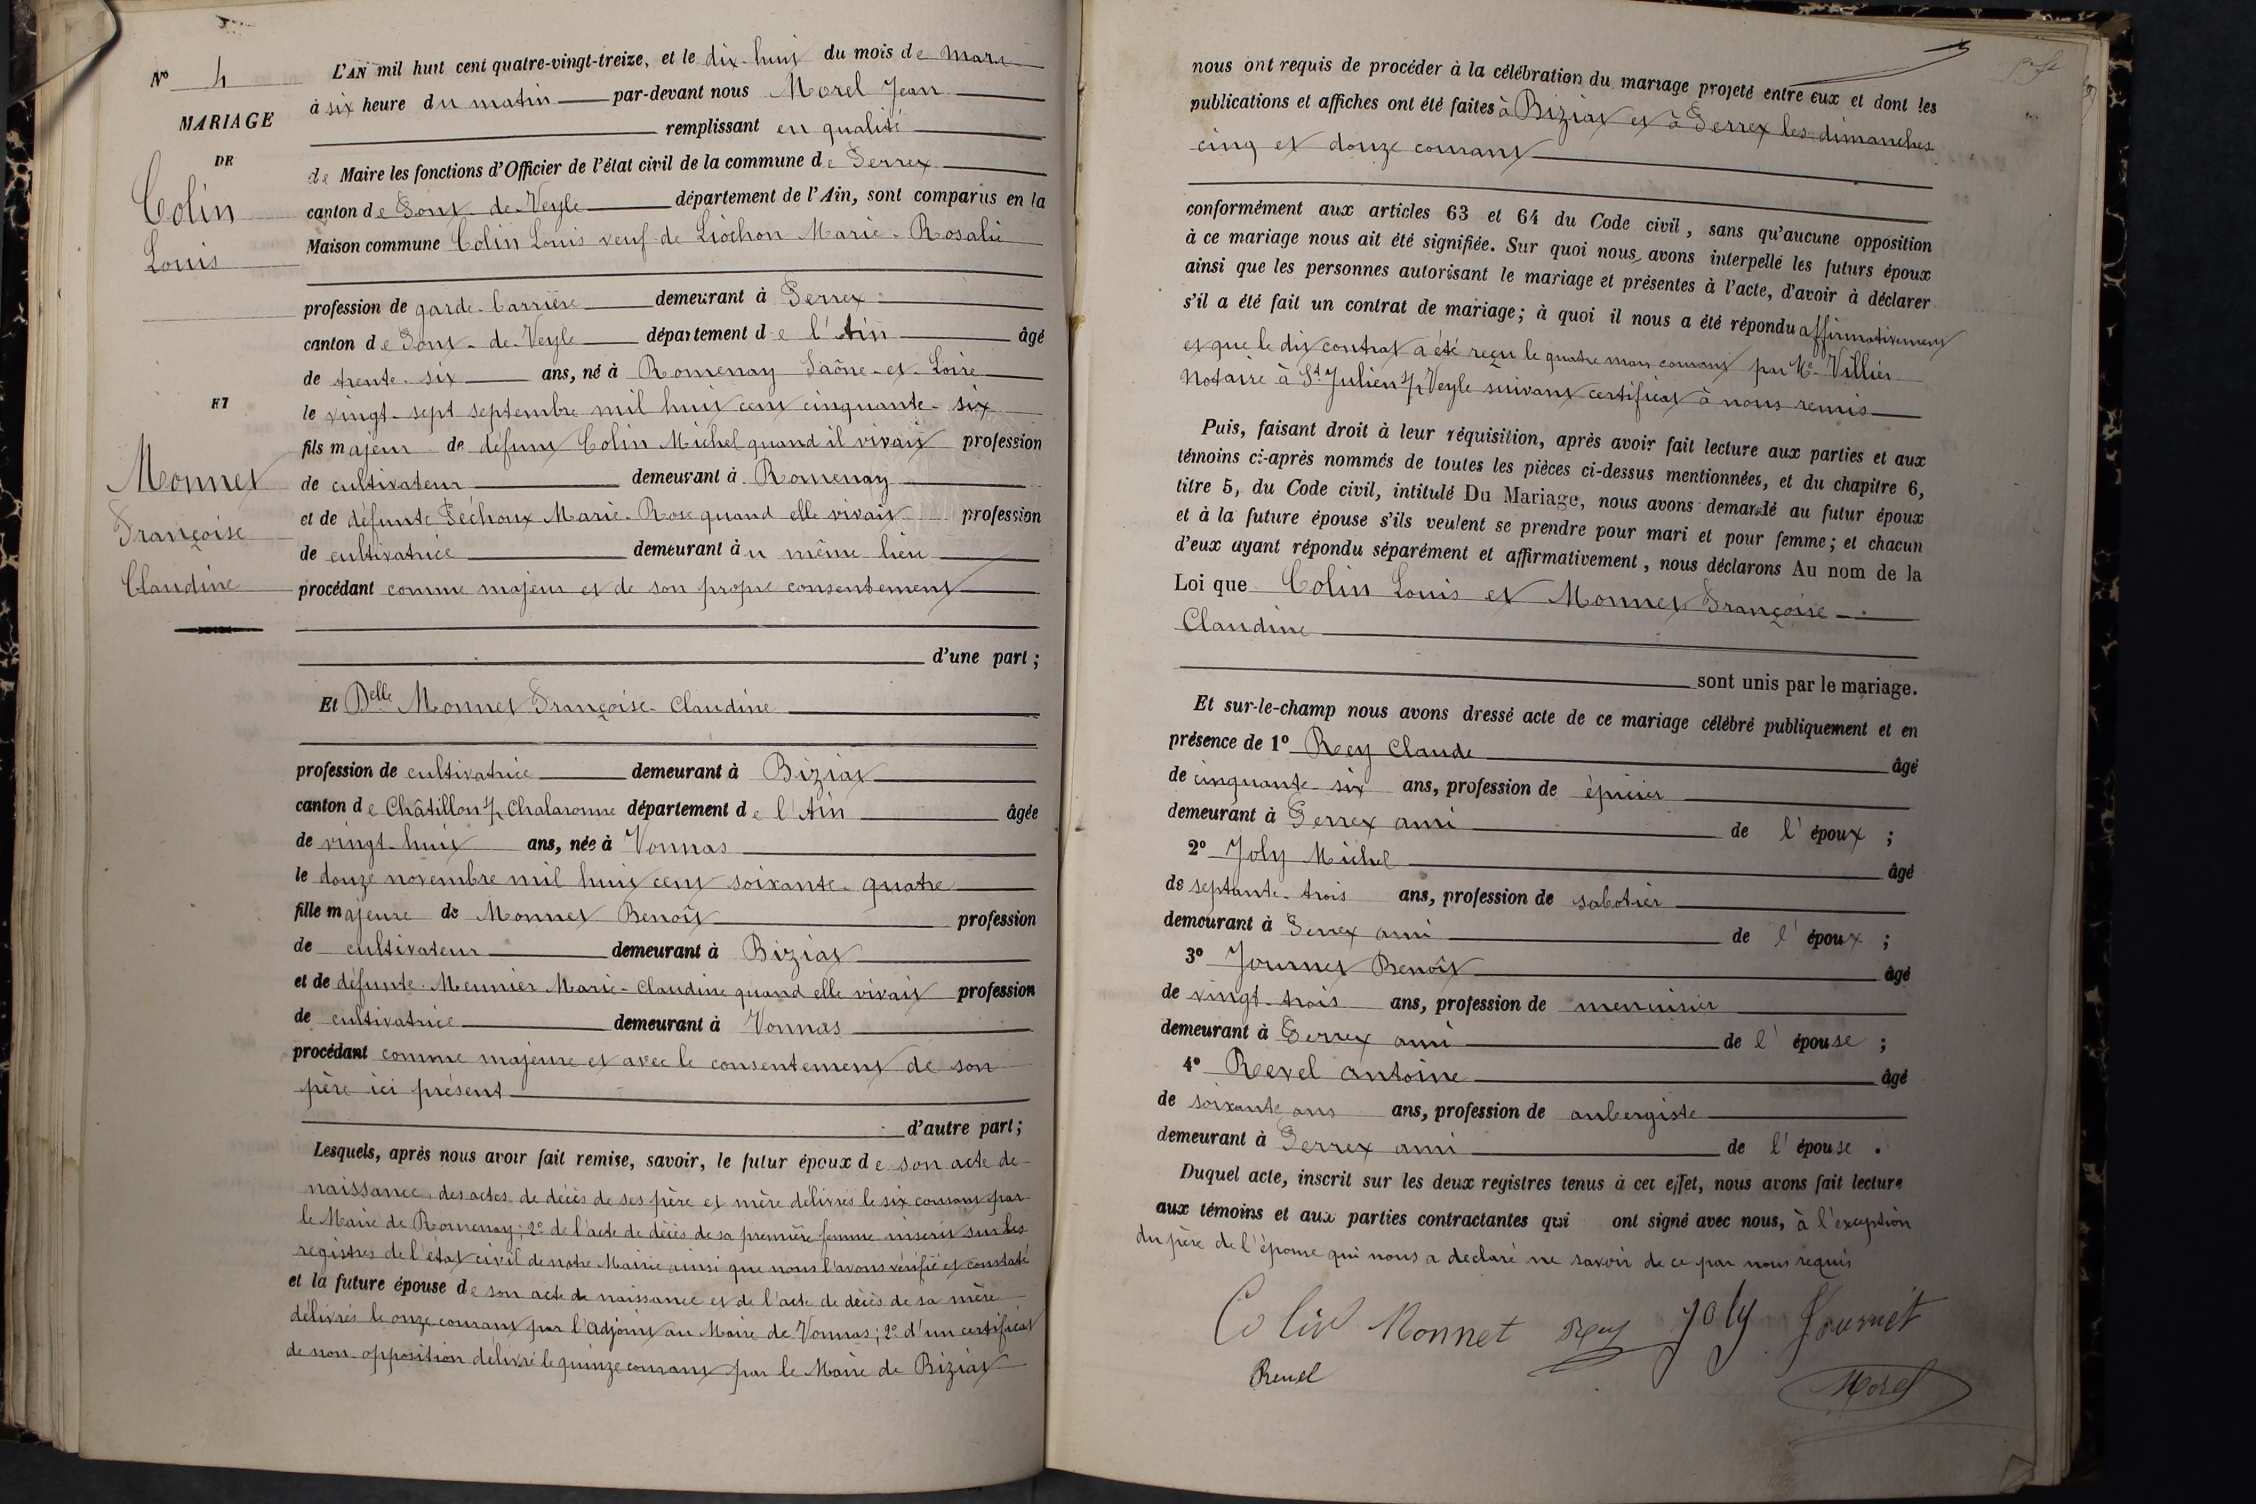 N° 4
MARIAGE
DE
Colin
Louis
ET
Monnet
Françoise
Claudine
L'AN mil huit cent quatre-vingt-treize, et le dix-huit du mois de mars
à six heure du matin par-devant nous Morel Jean
remplissant en qualité
de Maire les fonctions d'Officier de l'état civil de la commune de Perrex
canton de Pont-de-Veyle département de l'Ain, sont comparus en la
Maison commune Colin Louis veuf de Liochon Marie-Rosalie
profession de garde-barrière demeurant à Perrex
canton de Pont-de-Veyle département de l'Ain âgé
de trente-six ans, né à Romenay Saône-et-Loire
le vingt-sept septembre mil huit cent cinquante-six
fils majeur de défunt Colin Michel quand il vivait profession
de cultivateur demeurant à Romenay
et de défunte Péchoux Marie-Rose quand elle vivait profession
de cultivatrice demeurant àu même lieu
procédant comme majeur et de son propre consentement
d'une part ;
Et Delle Monnet Françoise-Claudine
profession de cultivatrice demeurant à Biziat
canton de Châtillon s/ Chalaronne département de l'Ain âgée
de vingt-huit ans, née à Vonnas
le douze novembre mil huit cent soixante-quatre
fille majeure de Monnet Benoît profession
de cultivateur demeurant à Biziat
et de défunte Meunier Marie-Claudine quand elle vivait profession
de cultivatrice demeurant à Vonnas
procédant comme majeure et avec le consentement de son
père ici présent
d'autre part ;
Lesquels, après nous avoir fait remise, savoir, le futur époux de son acte de
naissance, des actes de décès de ses père et mère délivrés le six courant par
le Maire de Romenay ; 2° de l'acte de décès de sa première femme inscrit sur les
registres de l'état civil de notre Mairie ainsi que nous l'avons vérifié et constaté
et la future épouse de son acte de naissance et de l'acte de décès de sa mère
délivrés le onze courant par l'adjoint au Maire de Vonnas ; 2° d'un certificat
de non-opposition délivré le quinze courant par le Maire de Biziat
nous ont requis de procéder à la célébration du mariage projeté entre eux et dont les
publications et affiches ont été faites à Biziat et à Perrex les dimanches
cinq et douze courant
conformément aux articles 63 et 64 du Code civil, sans qu'aucune opposition
à ce mariage nous ait été signifiée. Sur quoi nous avons interpellé les futurs époux
ainsi que les personnes autorisant le mariage et présentes à l'acte, d'avoir à déclarer
s'il a été fait un contrat de mariage ; à quoi il nous a été répondu affirmativement
et que le dit contrat a été reçu le quatre mars courant par Me Villier
Notaire à St Julien s/ Veyle suivant certificat à nous remis
Puis, faisant droit à leur réquisition, après avoir fait lecture aux parties et aux
témoins ci-après nommés de toutes les pièces ci-dessus mentionnées, et du chapitre 6,
titre 5, du Code civil, intitulé Du Mariage, nous avons demandé au futur époux
et à la future épouse s'ils veulent se prendre pour mari et pour femme ; et chacun
d'eux ayant répondu séparément et affirmativement, nous déclarons Au nom de la
Loi que Colin Louis et Monnet Françoise-
Claudine
sont unis par le mariage.
Et sur-le-champ nous avons dressé acte de ce mariage célébré publiquement et en
présence de 1° Rey Claude âgé
de cinquante-six ans, profession de épicier
demeurant à Perrex ami de l'époux ;
2° Joly Michel âgé
de septante-trois ans, profession de sabotier
demeurant à Perrex ami de l'époux ;
3° Journet Benoît âgé
de vingt-trois ans, profession de menuisier
demeurant à Perrex ami de l'épouse ;
4° Revel Antoine âgé
de soixante ans ans, profession de aubergiste
demeurant à Perrex ami de l'épouse .
Duquel acte, inscrit sur les deux registres tenus à cet effet, nous avons fait lecture
aux témoins et aux parties contractantes qui ont signé avec nous, à l'exception
du père de l'épouse qui nous a declaré ne savoir de ce par nous requis
Colin Monnet Rey Joly Journet
Revel Morel